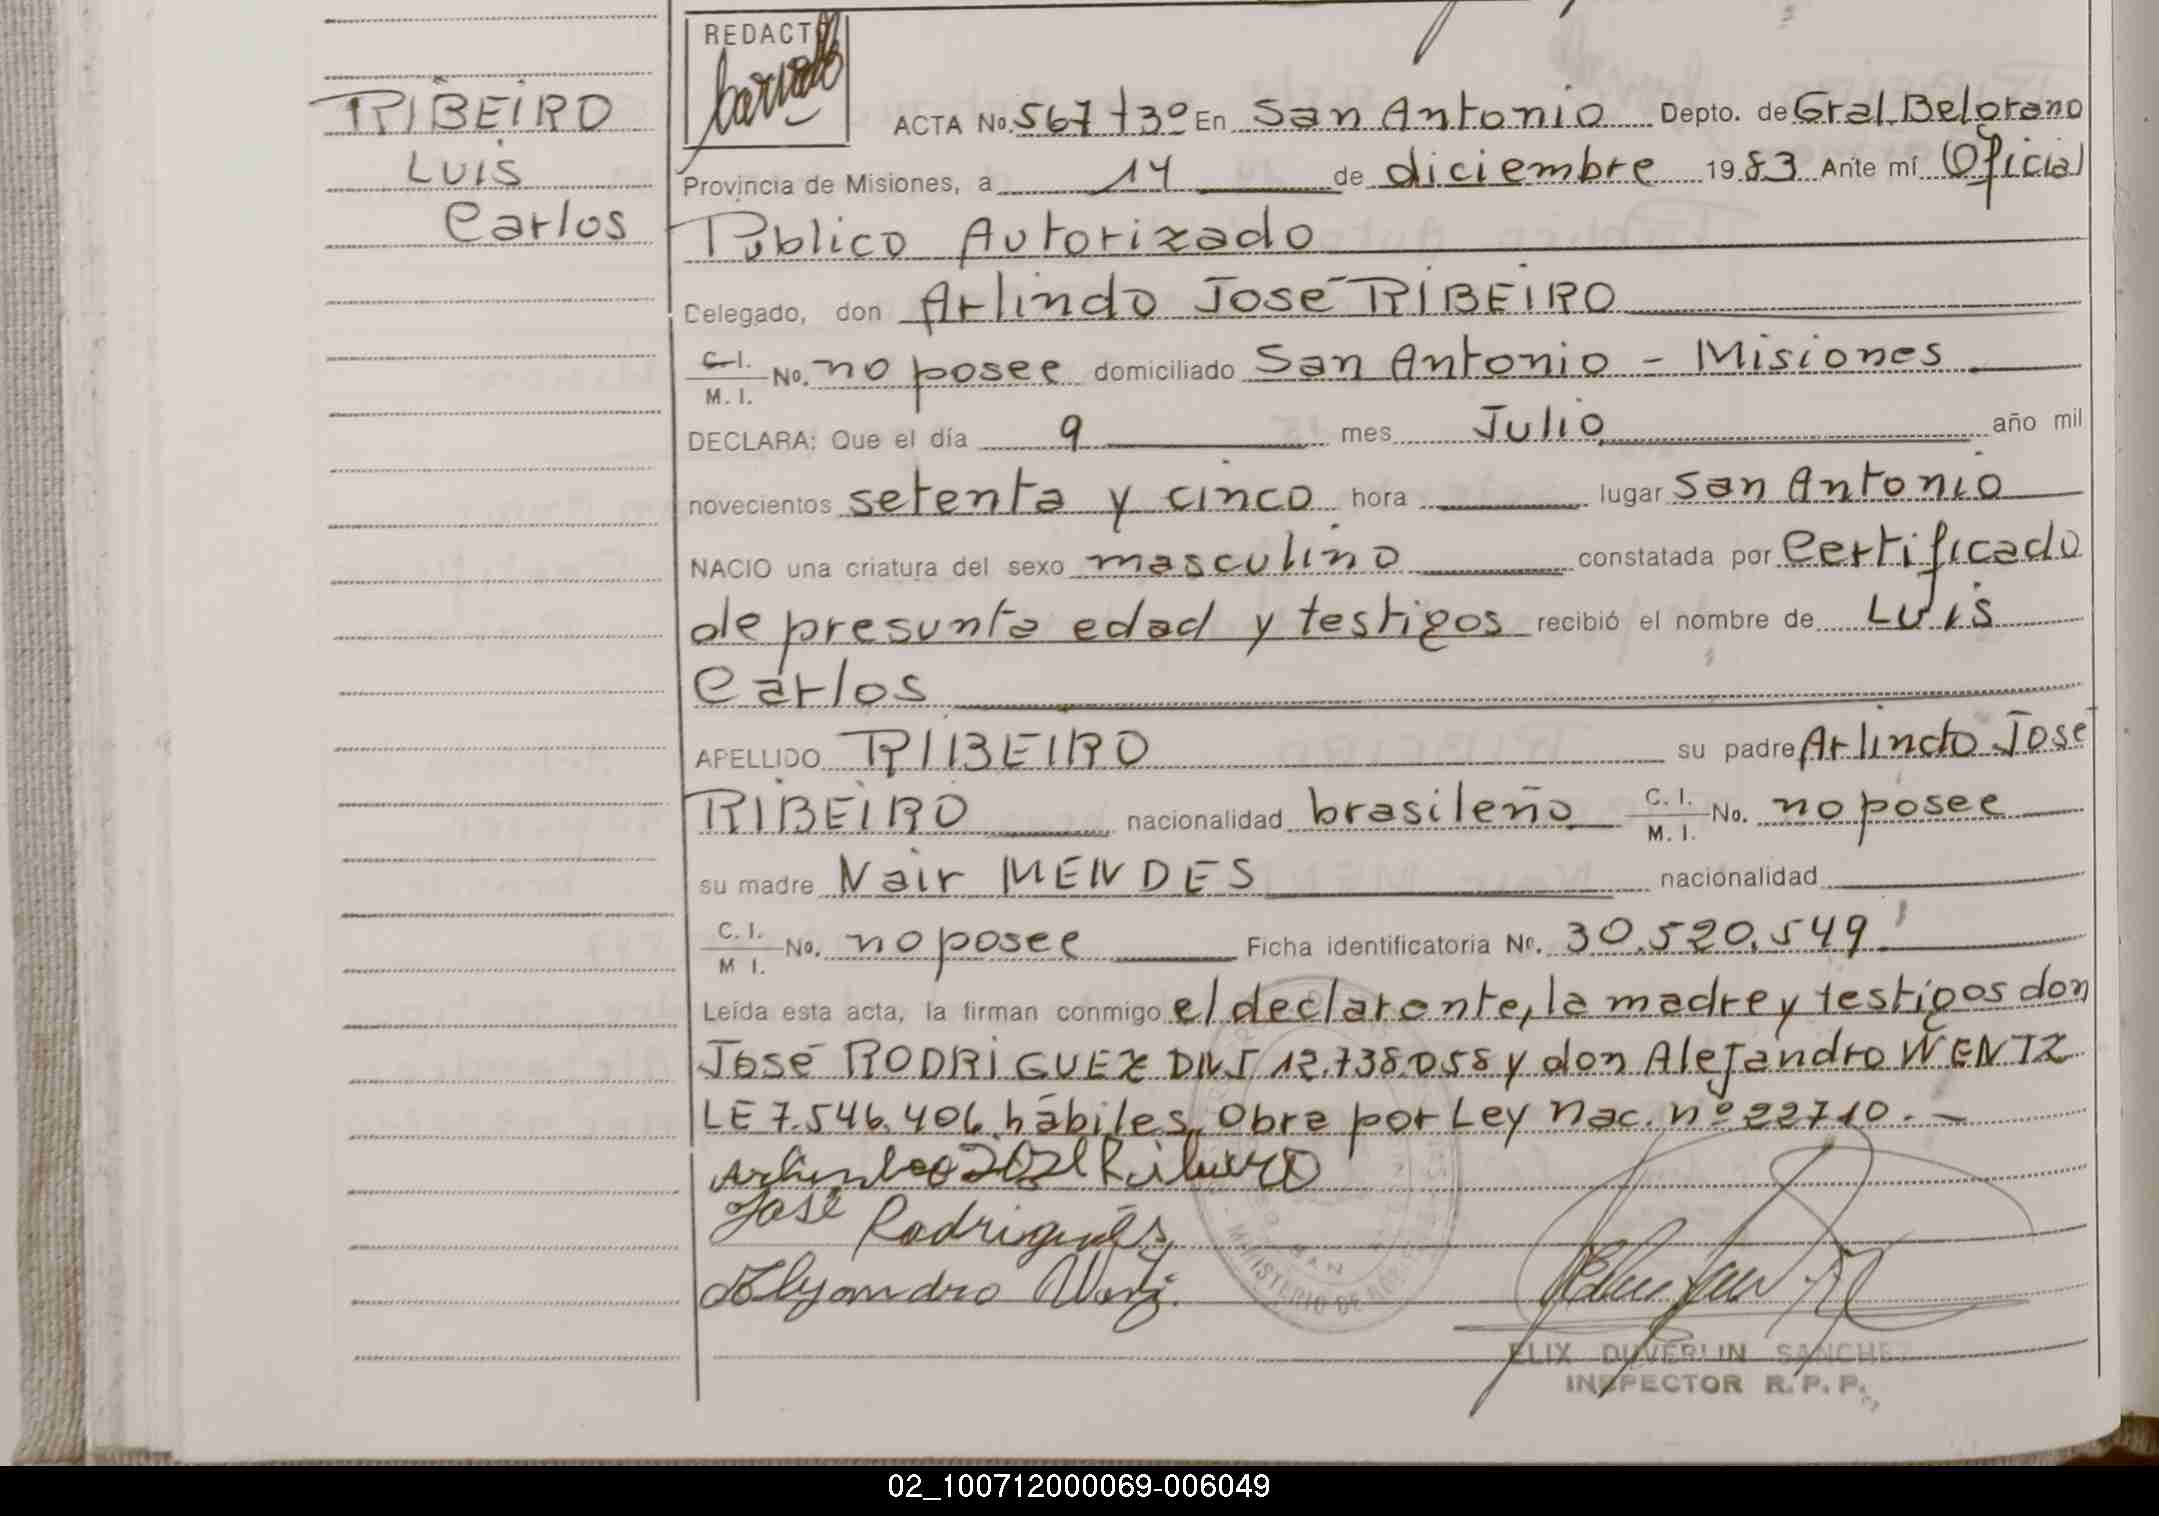 REDACTO
RIBEIRO
Luis
Carlos
ACTA No. 567 T3º En San Antonio Depto. de Gral. Belgrano
Provincia de Misiones, a 14 de diciembre 1983 Ante mí Oficial
Publico Autorizado
Delegado, don Arlindo José RIBEIRO
C.I. / M.I. No. no posee domiciliado San Antonio - Misiones
DECLARA: Que el día 9 mes Julio año mil
novecientos setenta y cinco hora lugar San Antonio
NACIO una criatura del sexo masculino constatada por Certificado
de presunta edad y testigos recibió el nombre de Luis
Carlos
APELLIDO RIBEIRO su padre Arlindo José
RIBEIRO nacionalidad brasileño C.I. / M.I. No. no posee
su madre Nair MENDES nacionalidad
C.I. / M I. No. no posee Ficha identificatoria Nº. 30.520.549
Leída esta acta, la firman conmigo el declarante, la madre y testigos don
José RODRIGUEZ DNI 12.738.058 y don Alejandro WENTZ
LE 7.546.406. hábiles. Obra por Ley Nac. nº 22710. -
José Rodrigues
Alejandro Wentz
MINISTERIO DE
ELIX DUVERLIN SANCHEZ
INSPECTOR R.P.P.
02_100712000069-006049